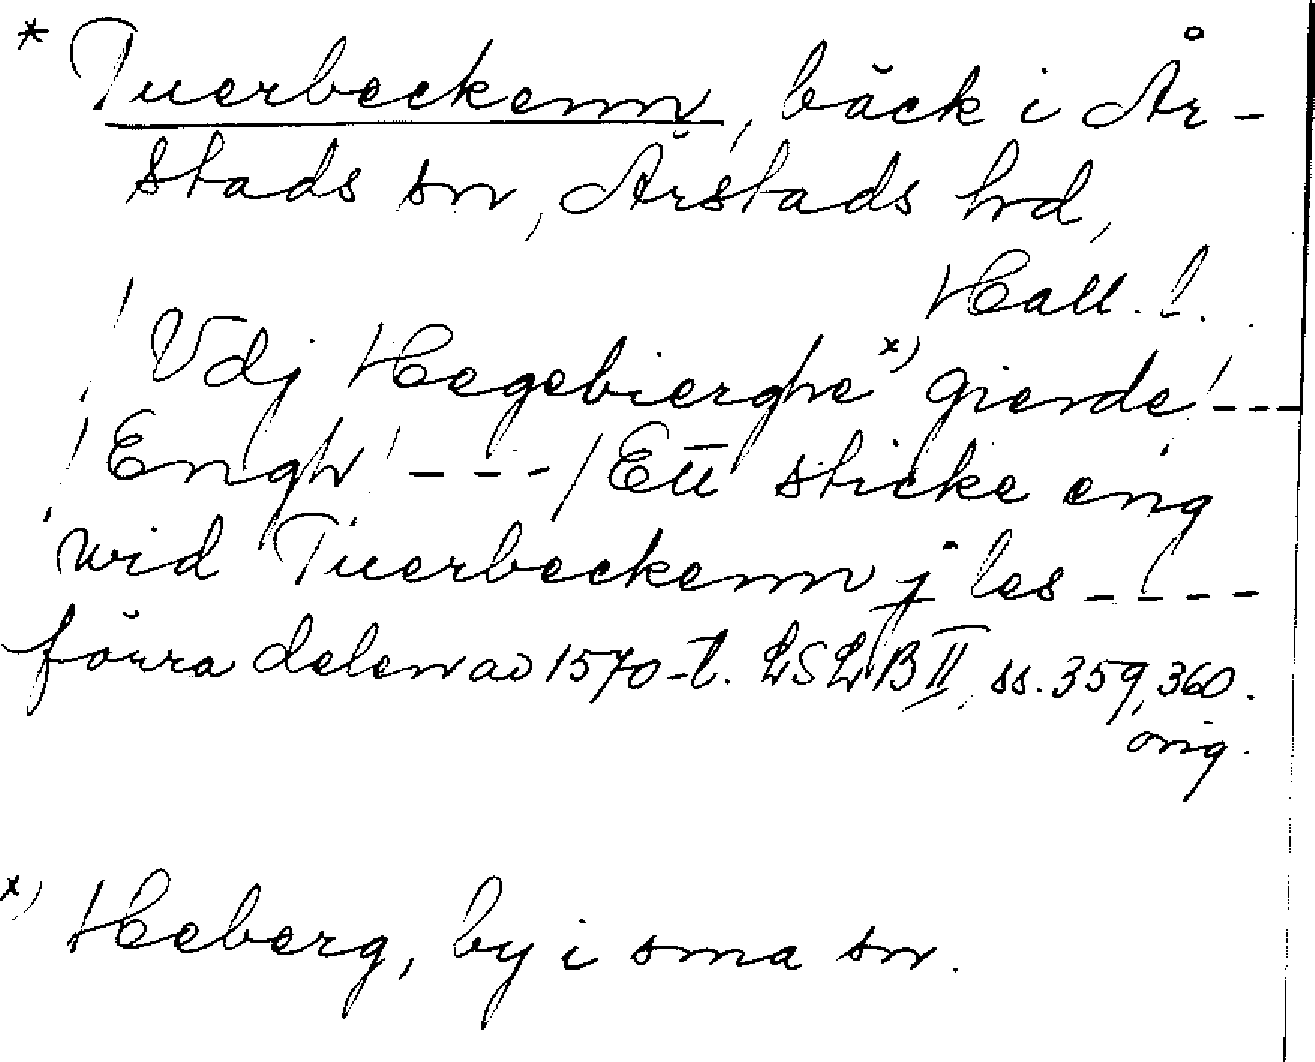 * Tuerbeckenn, bäck i År-
stads sn, Årstads hd,
Hall. l.
! Vdj Hegebierghe x) gierde! ---
! Engh! --- / Ett sticke eng
wid Tuerbeckenn j les ----
förra delen av 1570-t. LSLB II, ss. 359, 360.
orig.
x) Heberg, by i sma sn.